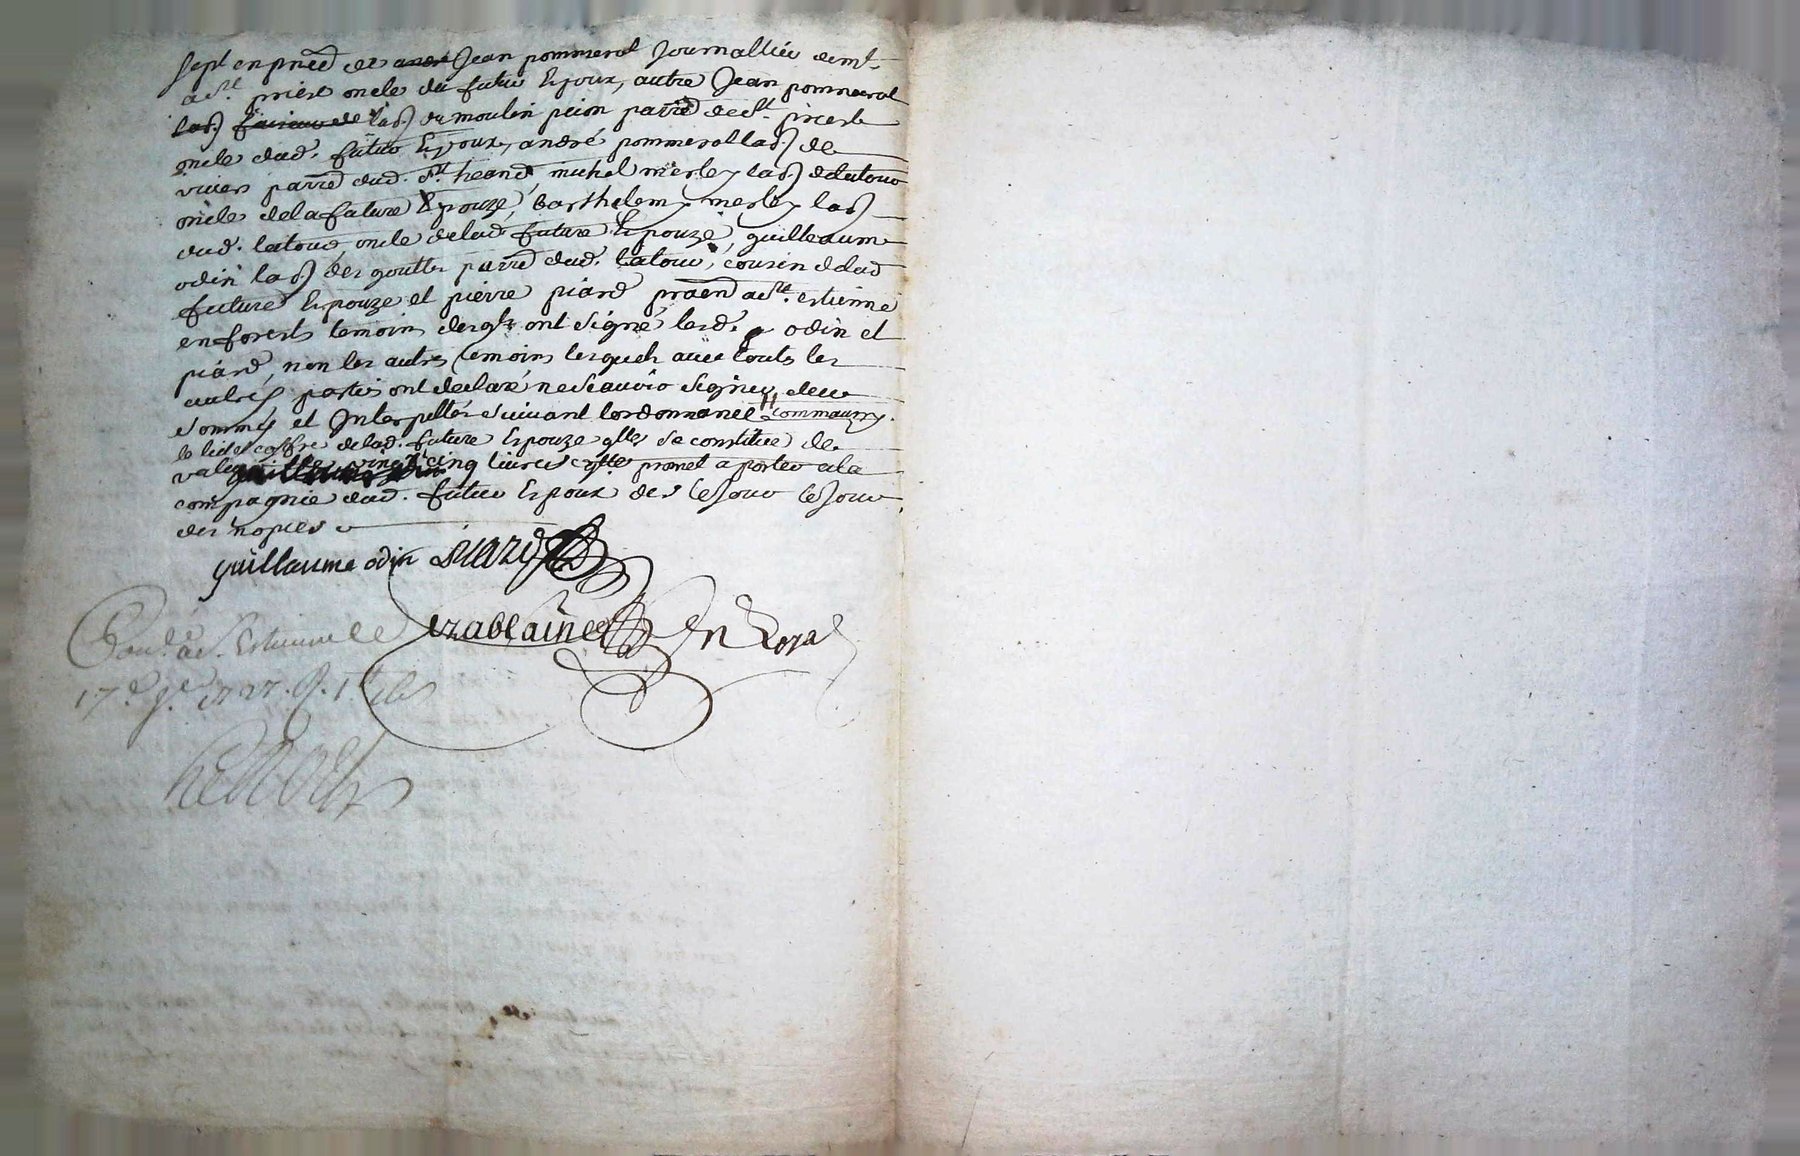 sept en pnce de Jean pommerol Journallier de mt.
a St. priest oncle du futur Epoux, autre Jean pommerol
lab. lab. du moulin piion parre de St. priest
oncle dud. futur Epoux, andré pommerol lab. de
viviers parre dud. St. heand, michel merley lab. de latour
oncle de la future Epouze, barthelemy merley lab.
dud. latour oncle de lad. future Epouze, guilleaume
odin lab. des gouttes parre dud. latour, cousin de lad.
future Epouze et pierre piard praen a St. estienne
en forests temoins desqls ont signé lesd. odin et
piard, non les autres temoins lesquels avec touts les
autres parties ont declaré ne scauoir signer, deue
sommés et Interpellés suivant lordonnance
le lit et coffre de lad. future Epouze qlles se constitue de
valeur vingt cinq livres promet a porter a la
compagnie dud. futur Epoux des le Jour le Jour
des nopces
guillaume odin piard
ezablainee Nre Royal
Conlé a St. Estienne le
17e 1727. R. 1